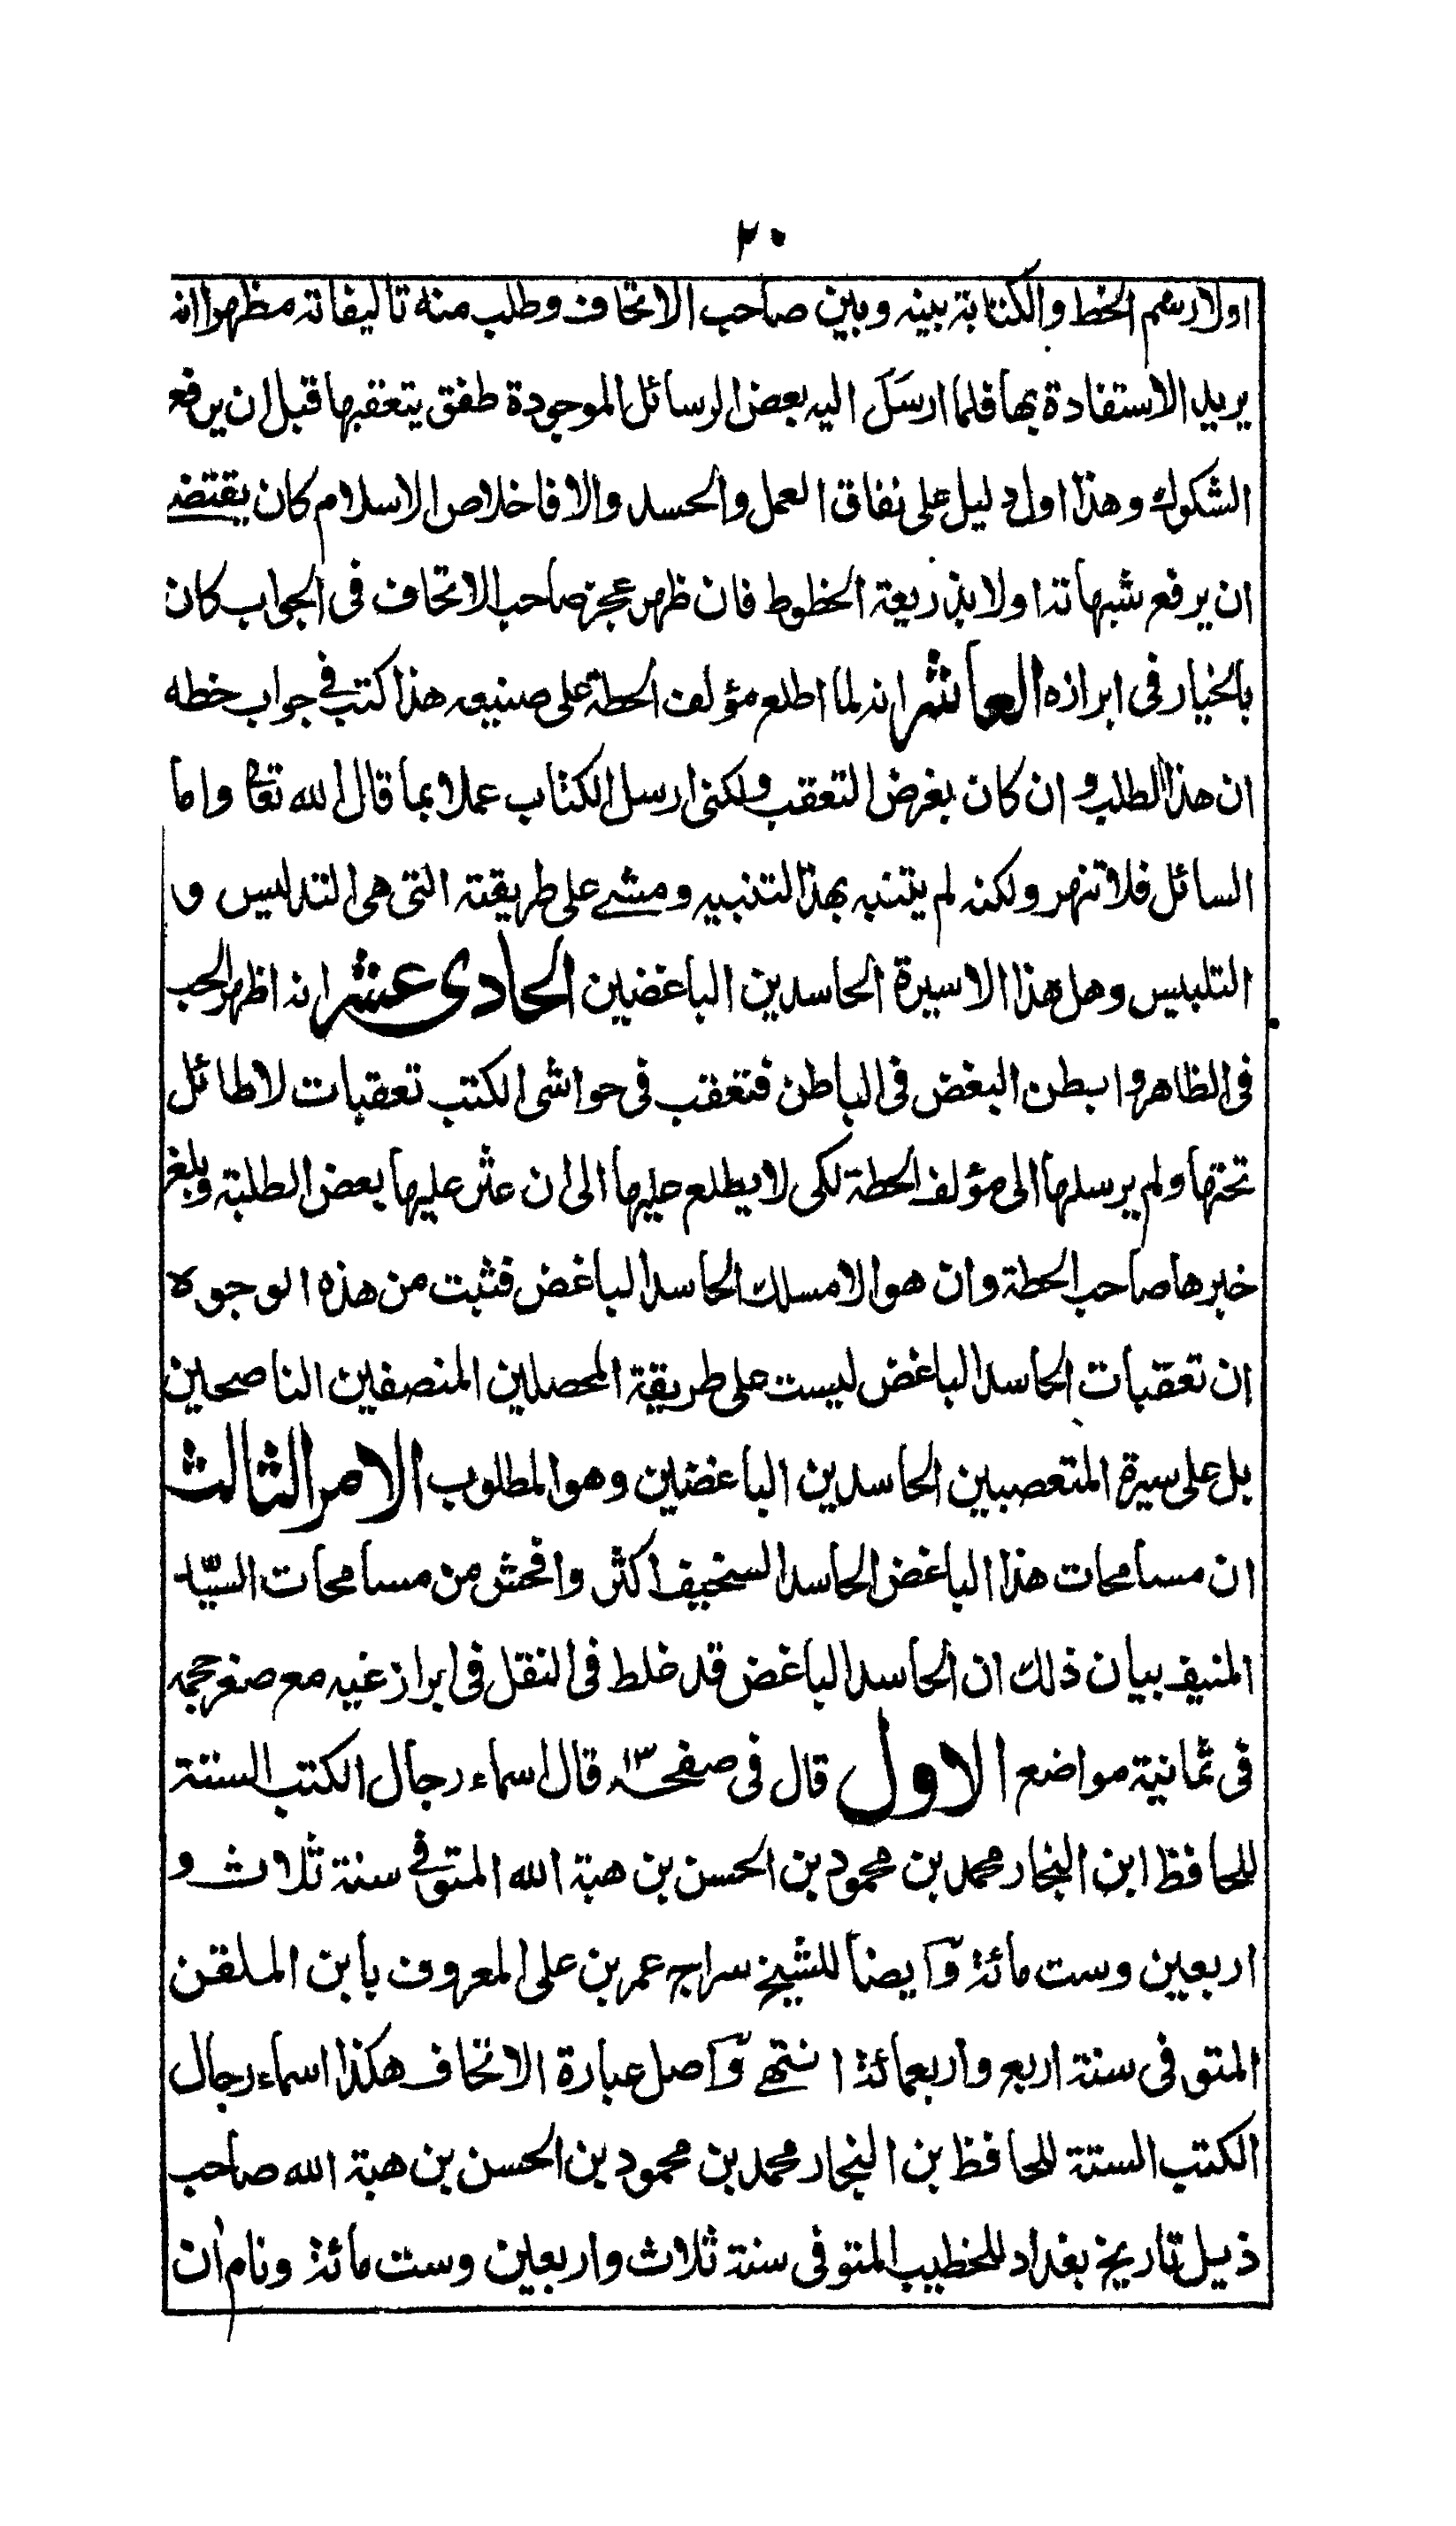 ٢٠
اولا رسم الخط والكتابة بينه وبين صاحب الاتحاف وطلب منه تاليفاته مظهرا انه
يريد الاستفادة بها فلما ارسل اليه بعض الرسائل الموجودة طفق يتعقبها قبل ان يرفع
الشكوك وهذا اول دليل على نفاق العمل والحسد والا فاخلاص الاسلام كان يقتضے
ان يرفع شبهاته اولا بذريعة الخطوط فان ظهر عجز صاحب الاتحاف فى الجواب كان
بالخيار فى ابرازه العاشر انه لما اطلع مؤلف الحطة على صنيعه هذا كتب فے جواب خطه
ان هذا الطلب وان كان بغرض التعقب ولكنى ارسل الكتاب عملا بما قال الله تعا واما
السائل فلا تنهر ولكنه لم يتنبه بهذا التنبيه ومشے على طريقته التى هى التدليس و
التلبيس وهل هذا الا سيرة الحاسدين الباغضين الحادى عشر انه اظهر الحب
فى الظاهر وابطن البغض فى الباطن فتعقب فى حواشى الكتب تعقبات لا طائل
تحتها ولم يرسلها الى مؤلف الحطة لكى لا يطلع عليها الى ان عثر عليها بعض الطلبة وبلغ
خبرها صاحب الحطة وان هو الا مسلك الحاسد الباغض فثبت من هذه الوجوه
ان تعقبات الحاسد الباغض ليست على طريقة المحصلين المنصفين الناصحين
بل على سيرة المتعصبين الحاسدين الباغضين وهو المطلوب الامر الثالث
ان مسامحات هذا الباغض الحاسد السخيف اكثر وافحش من مسامحات السيد
المنيف بيان ذلك ان الحاسد الباغض قد غلط فى النقل فى ابراز غيه مع صغر حجمه
فى ثمانية مواضع الاول قال فى صفحه ١٣ قال اسماء رجال الكتب الستة
للحافظ ابن النجار محمد بن محمود بن الحسن بن هبة الله المتوفے سنة ثلاث و
اربعين وست مائة وايضا للشيخ سراج عمر بن على المعروف بابن الملقن
المتوفى سنة اربع واربعمائة انتهے واصل عبارة الاتحاف هكذا اسماء رجال
الكتب الستة للحافظ بن النجار محمد بن محمود بن الحسن بن هبة الله صاحب
ذيل تاريخ بغداد للخطيب المتوفى سنة ثلاث واربعين وست مائة ونام ان